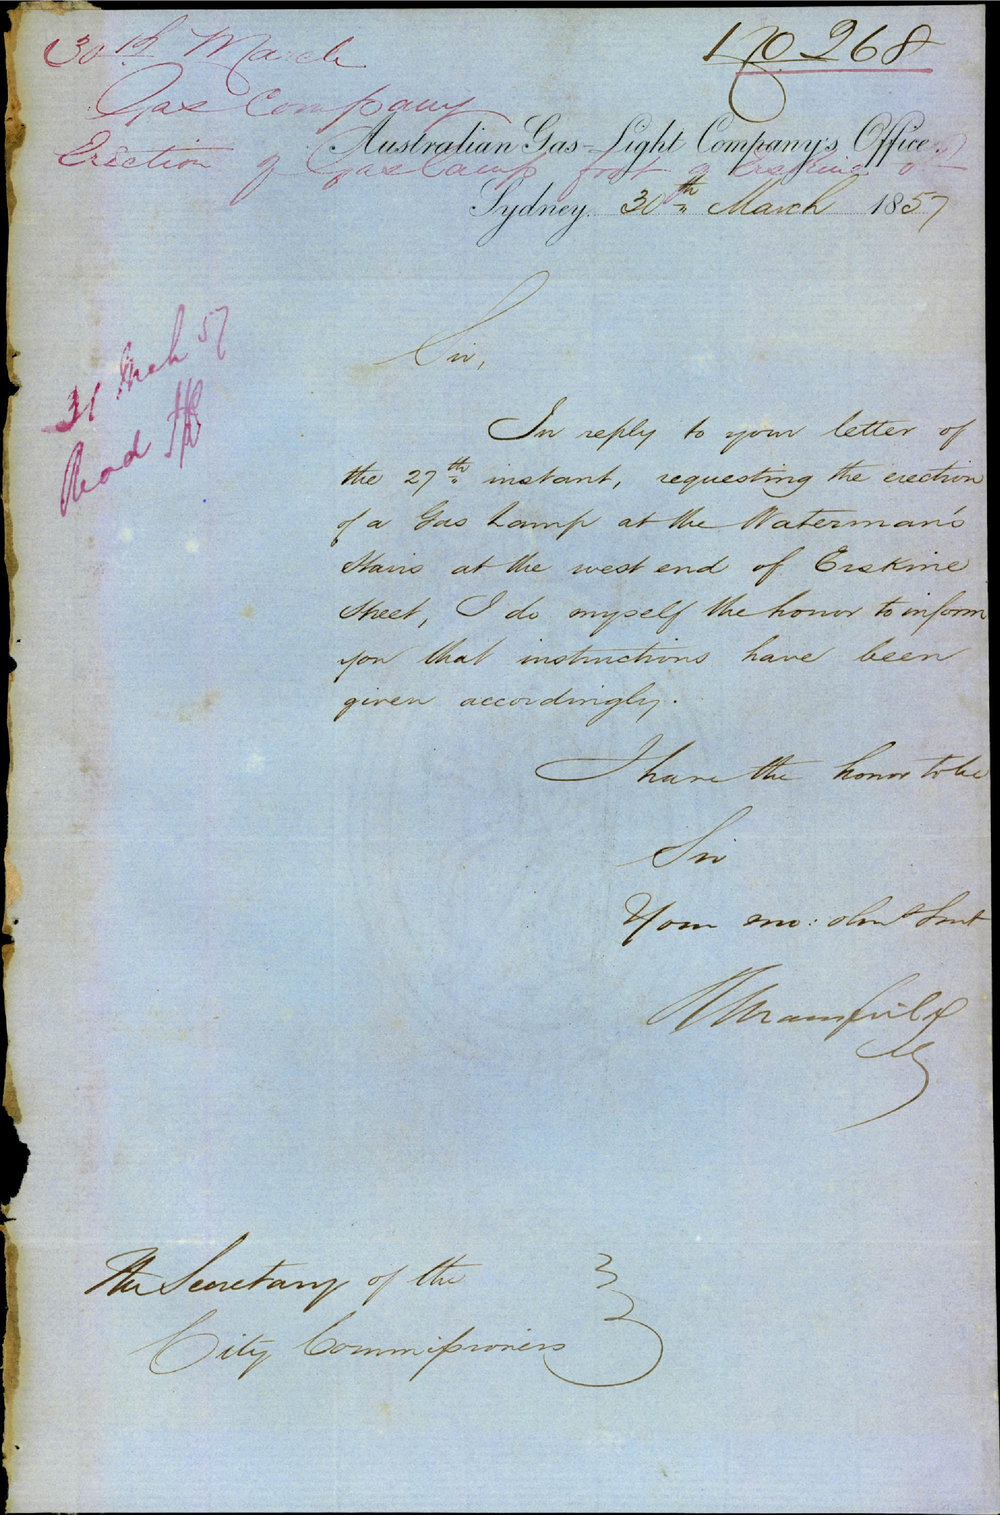 30th March
No 268
Gas Company
Erection of Gas Lamp foot of Erskine
Australian Gas-Light Company's Office.
Sydney. 30th March 1857
31 Mch 57
Read
Sir,
In reply to your letter of
the 27th instant, requesting the erection
of a Gas Lamp at the Waterman's
Stairs at the west end of Erskine
Street, I do myself the honor to inform
you that instructions have been
given accordingly.
I have the honor to be
Sir
Your mo: obnt Servt
Mansfield
The Secretary of the
City Commissioners